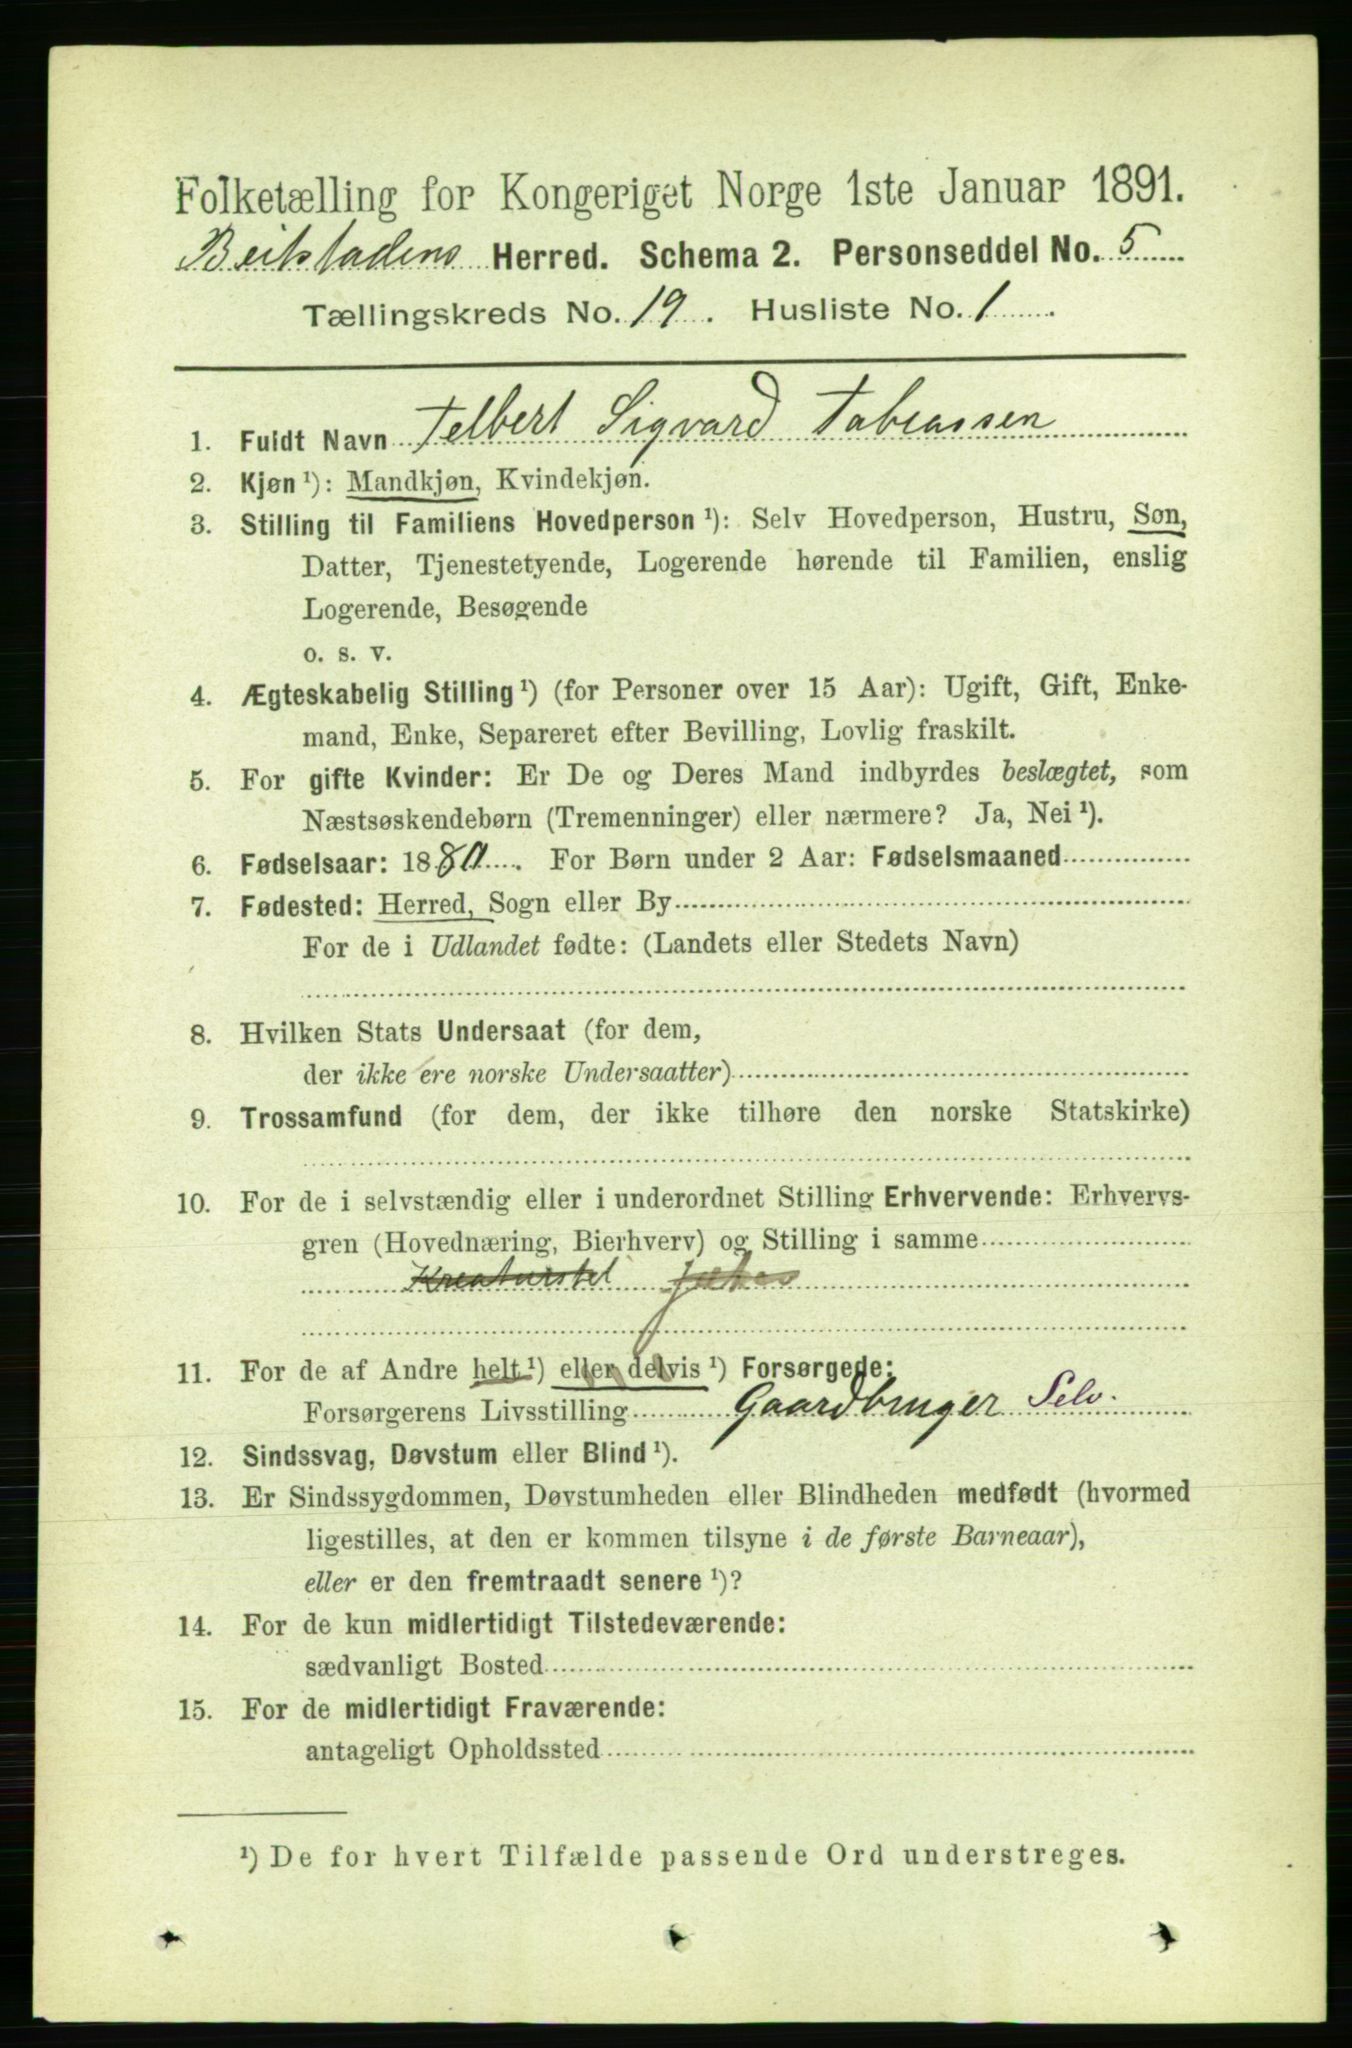 Folketælling for Kongeriget Norge 1ste Januar 1891.
Beitstadens Herred. Schema 2. Personseddel No. 5
Tællingskreds No. 19. Husliste No. 1
1. Fuldt Navn Telbert Sigvard Tobiassen
2. Kjøn ¹): Mandkjøn, Kvindekjøn.
3. Stilling til Familiens Hovedperson ¹): Selv Hovedperson, Hustru, Søn,
Datter, Tjenestetyende, Logerende hørende til Familien, enslig
Logerende, Besøgende
o. s. v.
4. Ægteskabelig Stilling ¹) (for Personer over 15 Aar): Ugift, Gift, Enke-
mand, Enke, Separeret efter Bevilling, Lovlig fraskilt.
5. For gifte Kvinder: Er De og Deres Mand indbyrdes beslægtet, som
Næstsøskendebørn (Tremenninger) eller nærmere? Ja, Nei ¹).
6. Fødselsaar: 1880. For Børn under 2 Aar: Fødselsmaaned
7. Fødested: Herred, Sogn eller By
For de i Udlandet fødte: (Landets eller Stedets Navn)
8. Hvilken Stats Undersaat (for dem,
der ikke ere norske Undersaatter)
9. Trossamfund (for dem, der ikke tilhøre den norske Statskirke)
10. For de i selvstændig eller i underordnet Stilling Erhvervende: Erhvervs-
gren (Hovednæring, Bierhverv) og Stilling i samme
Kreaturstel
11. For de af Andre helt ¹) eller delvis ¹) Forsørgede:
Forsørgerens Livsstilling Gaardbruger Selv.
12. Sindssvag, Døvstum eller Blind ¹).
13. Er Sindssygdommen, Døvstumheden eller Blindheden medfødt (hvormed
ligestilles, at den er kommen tilsyne i de første Barneaar),
eller er den fremtraadt senere ¹)?
14. For de kun midlertidigt Tilstedeværende:
sædvanligt Bosted
15. For de midlertidigt Fraværende:
antageligt Opholdssted
¹) De for hvert Tilfælde passende Ord understreges.